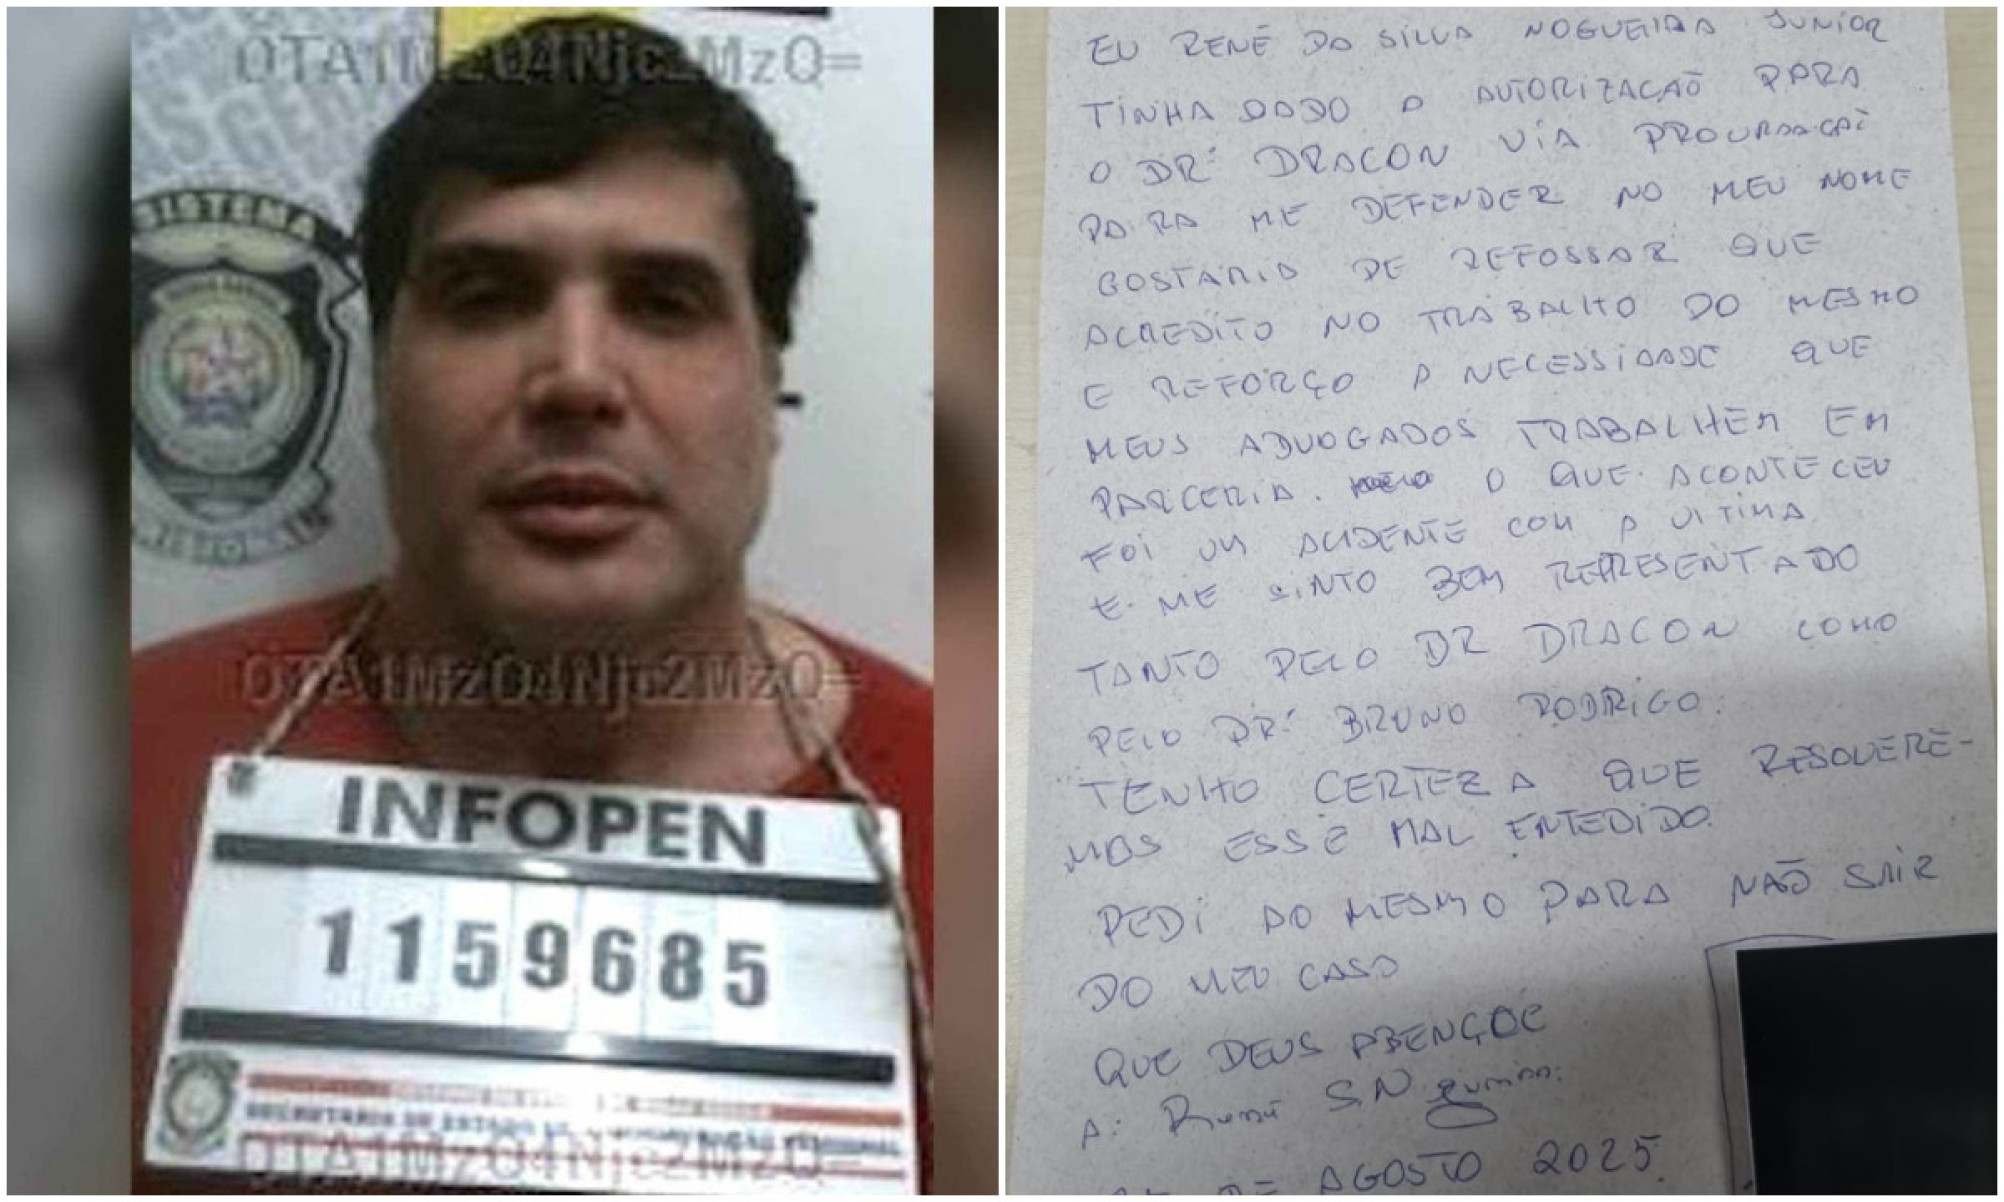 OTA1MzQ4Njc2MzQ=
SISTEMA
OTA1MzQ4Njc2MzQ=
INFOPEN
1159685
SECRETARIA DE ESTADO
OTA1MzQ4Njc2MzQ=
EU RENÊ DA SILVA NOGUEIRA JUNIOR
TINHA DADO A AUTORIZAÇAÕ PARA
O DR: DRACON VIA PROCURAÇAÕ
PARA ME DEFENDER NO MEU NOME
GOSTARIA DE REFOSSAR QUE
ACREDITO NO TRABALHO DO MESMO
E REFORÇO A NECESSIDADE QUE
MEUS ADVOGADOS TRABALHEM EM
PARCERIA. O QUE ACONTECEU
FOI UM ACIDENTE COM A VITIMA
E ME SINTO BEM REPRESENTADO
TANTO PELO DR DRACON COMO
PELO DR: BRUNO RODRIGO.
TENHO CERTEZA QUE RESOLVERE-
MOS ESSE MAL ENTEDIDO.
PEDI AO MESMO PARA NÃO SAIR
DO MEU CASO
QUE DEUS ABENÇOE
A: Renê S.N
DE AGOSTO 2025.